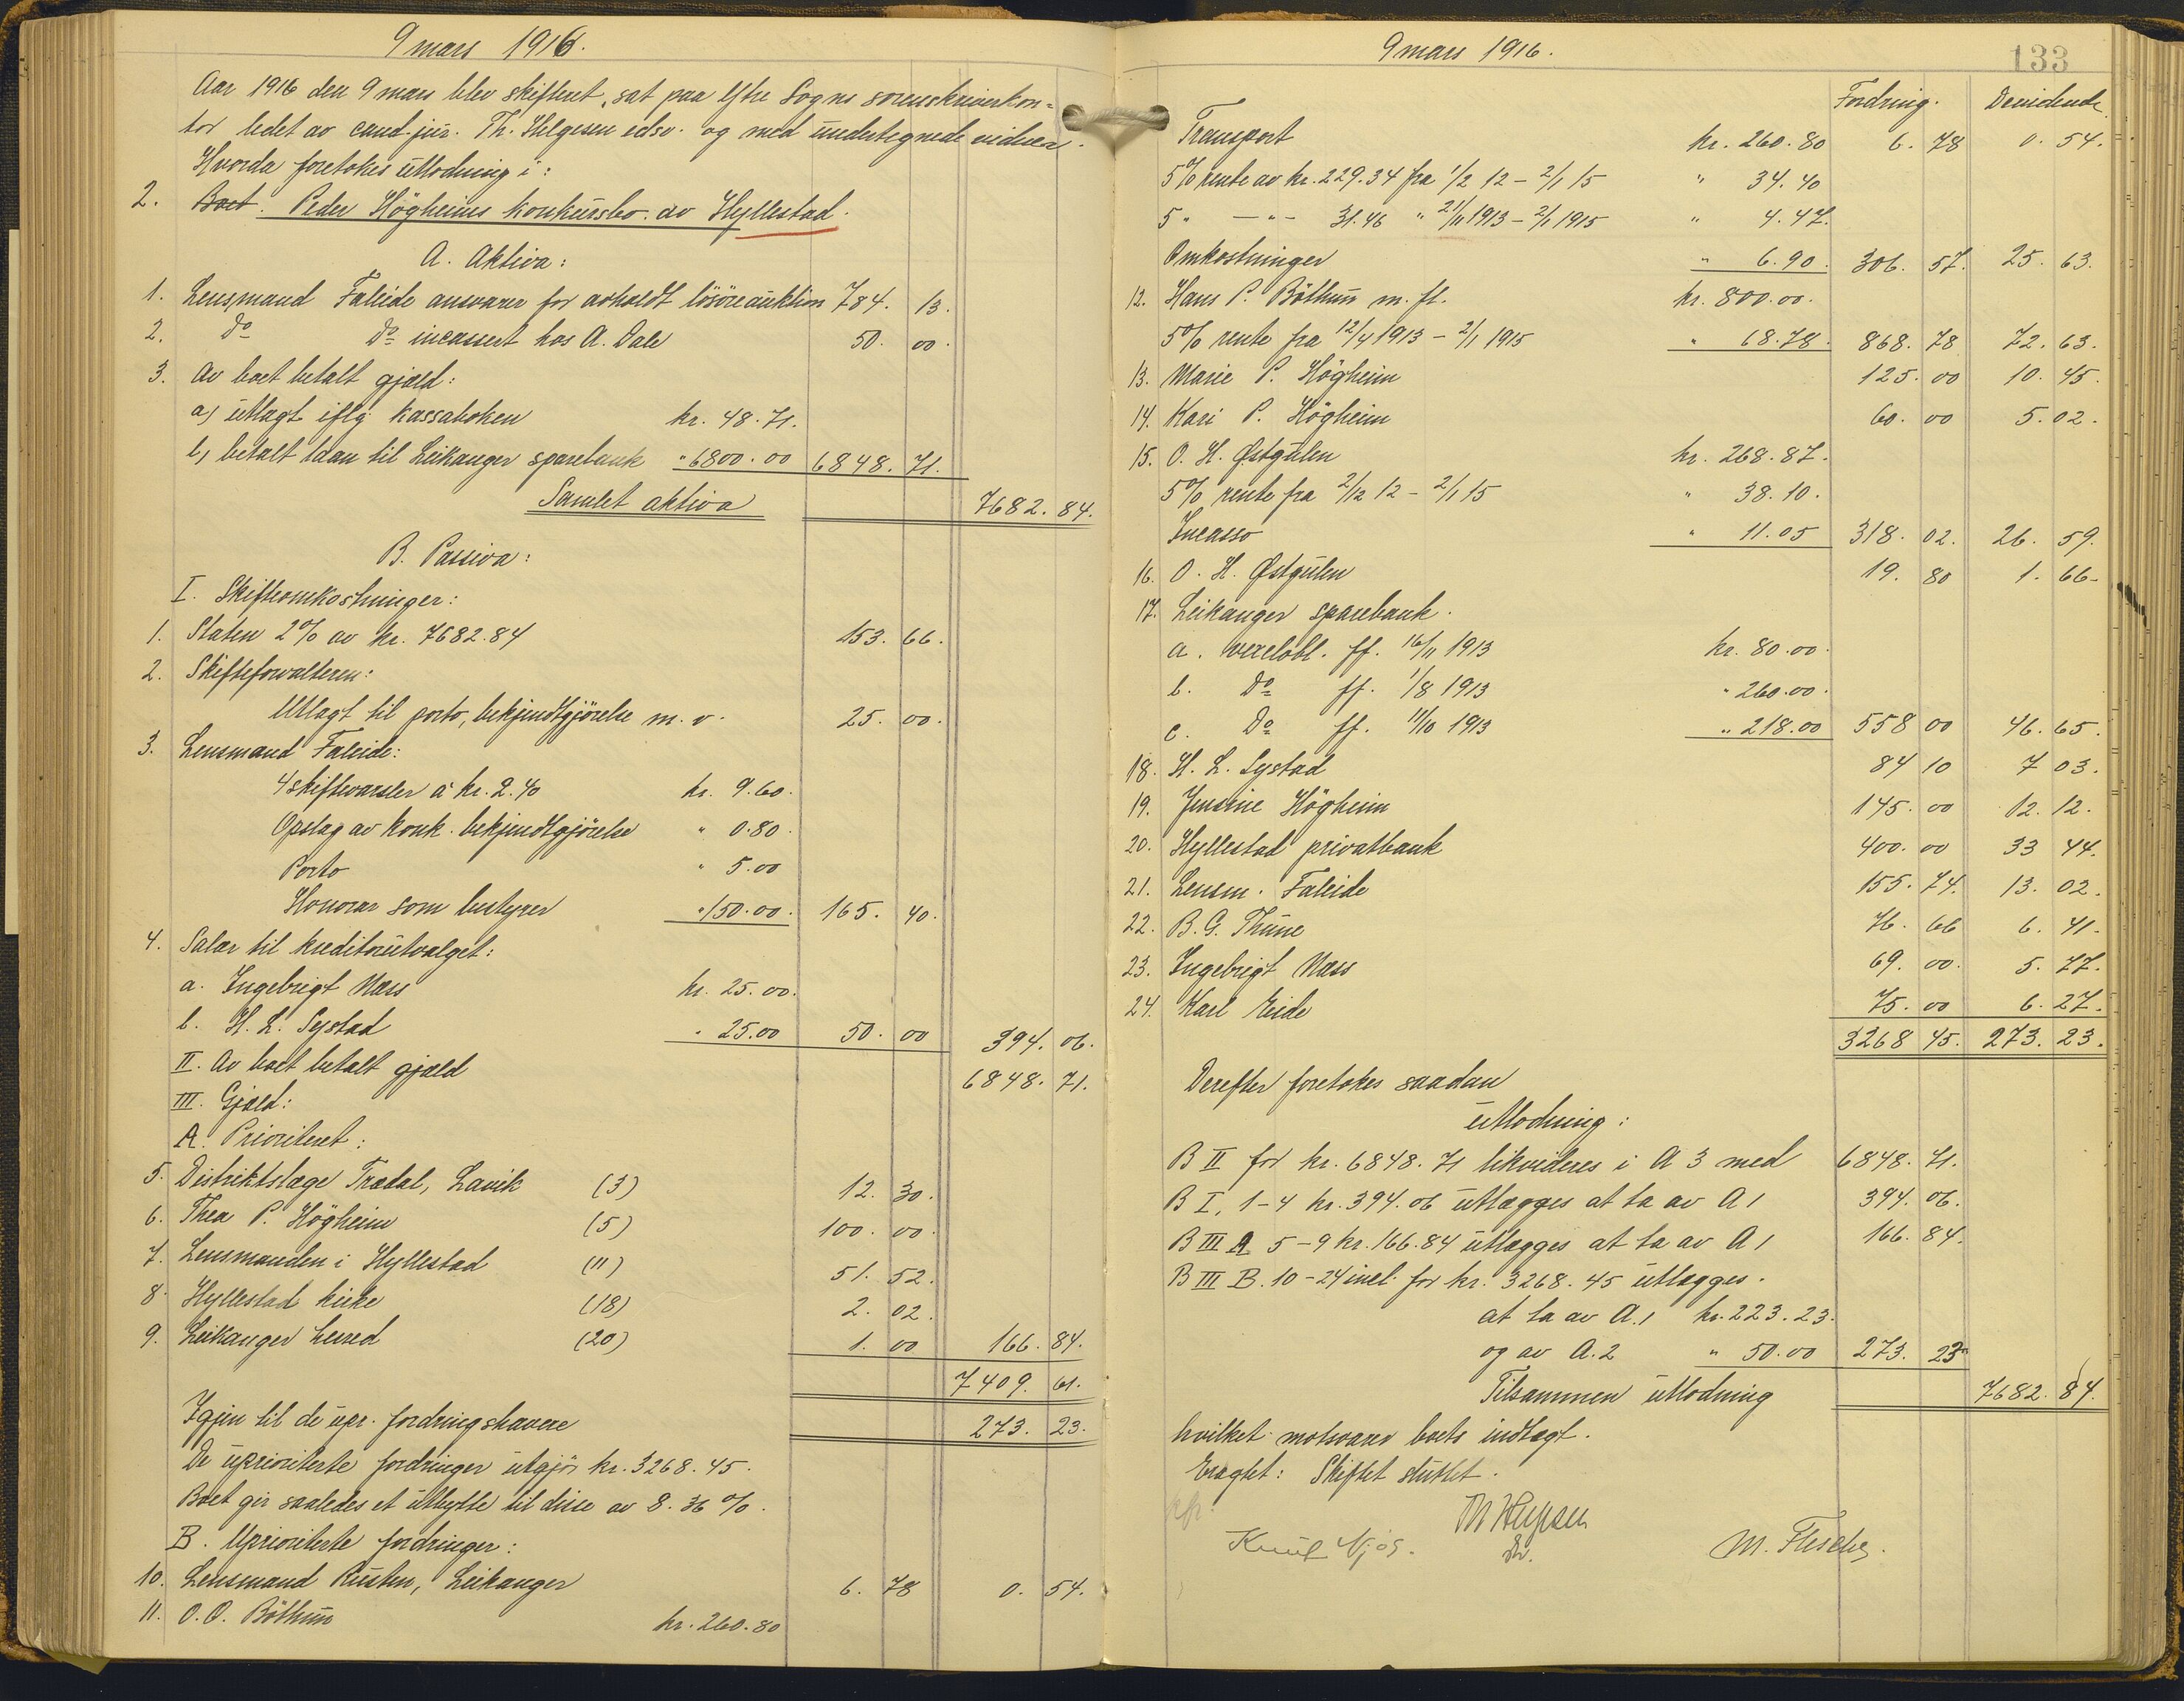 9 mars 1916.
Aar 1916 den 9 mars blev skifteret, sat paa Ytre Sogns sorenskriverkon=
tor ledet av cand. jur. Th. Helgesen edsv. og med undertegnede vidner.
Hvorda foretokes utlodning i:
2. Boet. Peder Högheims konkursbo. av Hyllestad.
A. Aktiva:
1. Lensmand Faleide ansvarer for avholdt lösöreauktion 784. 13.
2. Do Do incassert hos A. Dale 50. 00.
3. Av boet betalt gjæld:
a) utlagt iflg. kassaboken kr. 48.71.
b) betalt laan til Leikanger sparebank " 6800.00 6848. 71.
Samlet aktiva 7682. 84.
B. Passiva:
I. Skifteomkostninger:
1. Staten 2% av kr. 7682.84 153. 66.
2. Skifteforvalteren:
Utlagt til porto, bekjendtgjörelse m. v. 25. 00.
3. Lensmand Faleide:
4 skiftevarsler à kr. 2.40 kr. 9.60.
Opslag av konk. bekjendtgjörelse " 0.80.
Porto " 5.00
Honorar som bestyrer " 150.00. 165. 40.
4. Salær til kreditorutvalget:
a. Ingebrigt Næss kr. 25.00.
b. H. L. Systad " 25.00 50. 00 394. 06.
II. Av boet betalt gjæld 6848. 71.
III. Gjæld:
A. Prioritert:
5. Distriktslæge Trædal, Lavik (3) 12. 30.
6. Thea P. Högheim (5) 100. 00.
7. Lensmanden i Hyllestad (11) 51. 52.
8. Hyllestad kirke (18) 2. 02.
9. Leikanger herred (20) 1. 00 166. 84.
7409. 61.
Igjen til de upr. fordringshavere 273. 23.
De uprioriterte fordringer utgjör kr. 3268.45.
Boet gir saaledes et utbytte til disse av 8.36 %.
B. Uprioriterte fordringer:
10. Lensmand Rusten, Leikanger 6. 78 0. 54.
11. O. O. Böthun kr. 260.80
9 mars 1916.
133
Fordring. Devidende.
Transport kr. 260.80 6. 78 0. 54.
5% rente av kr. 229.34 fra 1/2 12 - 2/1 15 " 34.40
5 " — " - 31.46 " 21/11 1913 - 2/1 1915 " 4.47.
Omkostninger " 6.90. 306. 57. 25. 63.
12. Hans P. Böthun m. fl. kr. 800.00.
5% rente fra 12/4 1913 - 2/1 1915 " 68.78. 868. 78 72. 63.
13. Marie P. Högheim 125. 00 10. 45.
14. Kari P. Högheim 60. 00 5. 02.
15. O. H. Østgulen kr. 268.87.
5% rente fra 2/12 12 - 2/1 15 " 38.10.
Incasso " 11.05 318. 02. 26. 59.
16. O. H. Østgulen 19. 80 1. 66-
17. Leikanger sparebank.
a. vexelobl. ff. 16/11 1913 kr. 80.00.
b. Do ff. 1/8 1913 " 260.00.
c. Do ff. 11/10 1913 " 218.00 558 00 46. 65.
18. H. L. Systad 84 10 7 03.
19. Jensine Högheim 145. 00 12. 12.
20. Hyllestad privatbank 400. 00 33 44.
21. Lensm. Faleide 155. 74. 13. 02.
22. B. G. Thune 76. 66 6. 41.
23. Ingebrigt Næss 69. 00. 5. 77.
24. Karl Eide 75. 00 6. 27.
3268 45. 273. 23.
Derefter foretokes saadan
utlodning:
B II for kr. 6848.71 likvideres i A 3 med 6848. 71.
B I, 1-4 kr. 394.06 utlægges at ta av A 1 394. 06.
B III A 5-9 kr. 166.84 utlægges at ta av A 1 166. 84.
B III B. 10-24 incl. for kr. 3268.45 utlægges.
at ta av A. 1 kr. 223.23.
og av A. 2 " 50.00 273. 23"
Tilsammen utlodning 7682. 84.
hvilket motsvarer boets indtægt.
Eragtet: Skiftet sluttet.
Th Helgesen
Knut Njøs. edsv. M. Flesche.